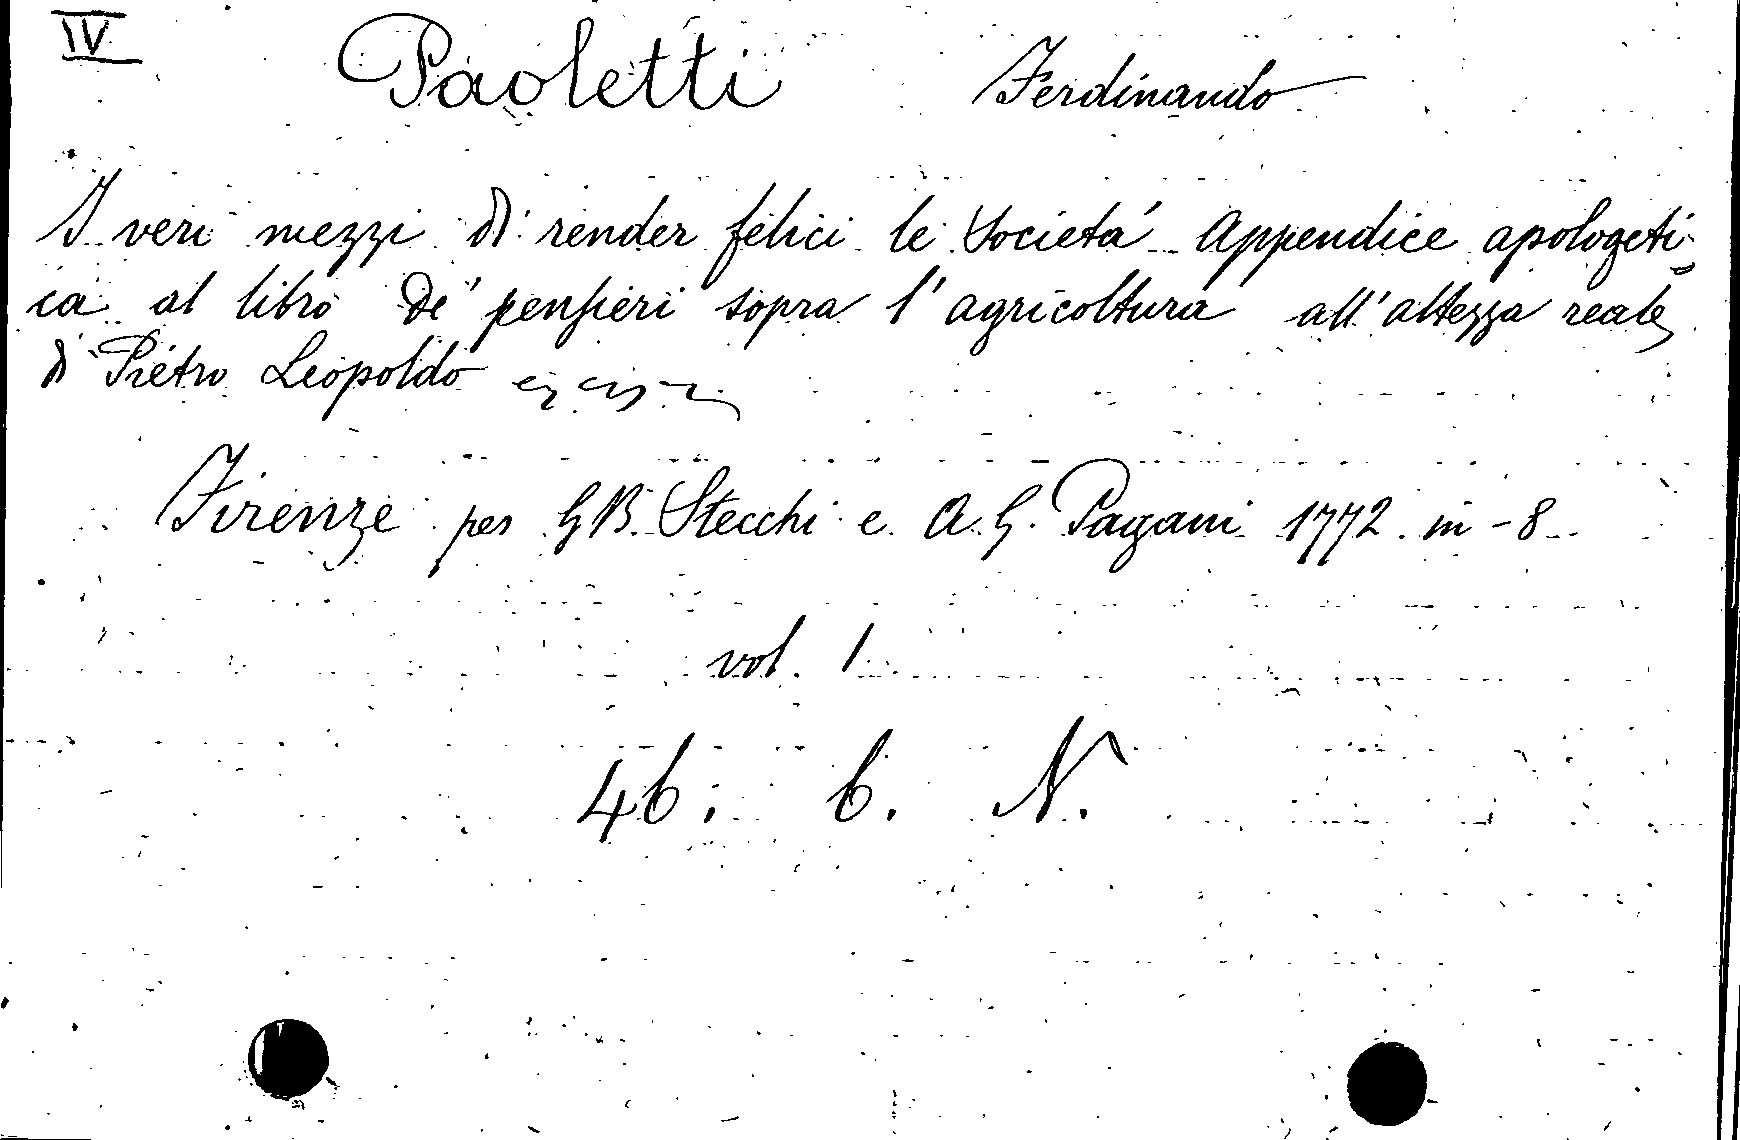 IV
Paoletti Ferdinando
I veri mezzi di render felici le Societá Appendice apologeti=
ca al libro de' pensieri sopra l'agricoltura all'altezza reale
di Pietro Leopoldo
Firenze per G B. Stecchi e A. G. Pagani 1772 in-8
vol. 1
46. 6. N.